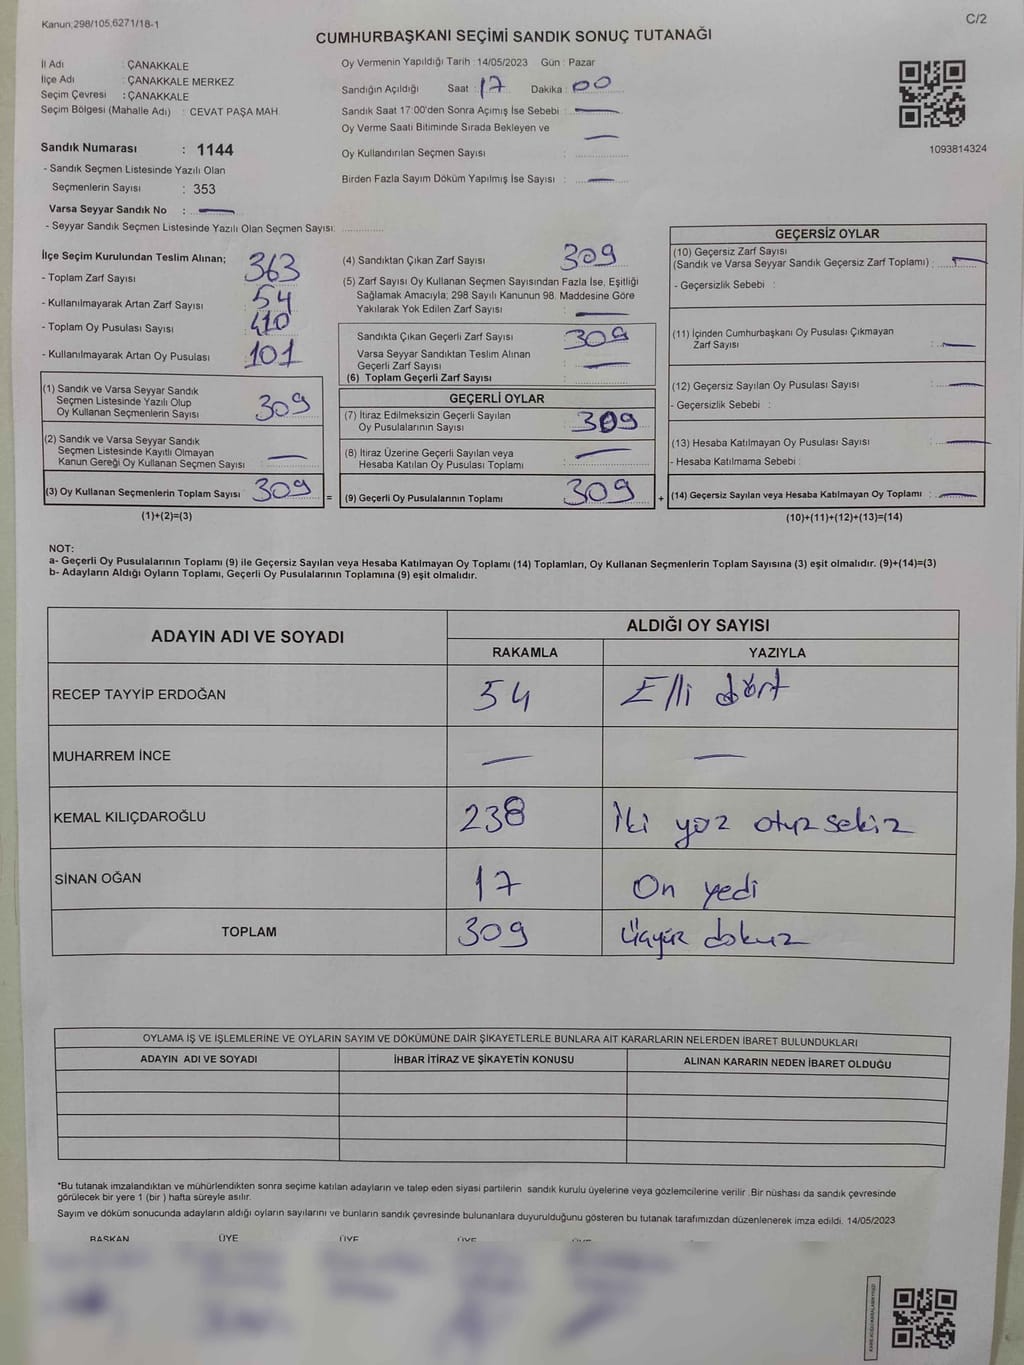 Kanun,298/105,6271/18-1
C/2
CUMHURBAŞKANI SEÇİMİ SANDIK SONUÇ TUTANAĞI
İl Adı : ÇANAKKALE
İlçe Adı : ÇANAKKALE MERKEZ
Seçim Çevresi : ÇANAKKALE
Seçim Bölgesi (Mahalle Adı) : CEVAT PAŞA MAH.
Sandık Numarası : 1144
- Sandık Seçmen Listesinde Yazılı Olan
Seçmenlerin Sayısı : 353
Varsa Seyyar Sandık No : —
- Seyyar Sandık Seçmen Listesinde Yazılı Olan Seçmen Sayısı: ............
Oy Vermenin Yapıldığı Tarih : 14/05/2023 Gün : Pazar
Sandığın Açıldığı Saat : 17 Dakika : 00
Sandık Saat 17:00'den Sonra Açımış İse Sebebi : —
Oy Verme Saati Bitiminde Sırada Bekleyen ve —
Oy Kullandırılan Seçmen Sayısı : ............
Birden Fazla Sayım Döküm Yapılmış İse Sayısı : —
1093814324
İlçe Seçim Kurulundan Teslim Alınan;
- Toplam Zarf Sayısı 363
- Kullanılmayarak Artan Zarf Sayısı 54
- Toplam Oy Pusulası Sayısı 410
- Kullanılmayarak Artan Oy Pusulası 101
(1) Sandık ve Varsa Seyyar Sandık
Seçmen Listesinde Yazılı Olup
Oy Kullanan Seçmenlerin Sayısı 309
(2) Sandık ve Varsa Seyyar Sandık
Seçmen Listesinde Kayıtlı Olmayan
Kanun Gereği Oy Kullanan Seçmen Sayısı : —
(3) Oy Kullanan Seçmenlerin Toplam Sayısı 309 =
(1)+(2)=(3)
(4) Sandıktan Çıkan Zarf Sayısı 309
(5) Zarf Sayısı Oy Kullanan Seçmen Sayısından Fazla İse, Eşitliği
Sağlamak Amacıyla; 298 Sayılı Kanunun 98. Maddesine Göre
Yakılarak Yok Edilen Zarf Sayısı : —
Sandıkta Çıkan Geçerli Zarf Sayısı 309
Varsa Seyyar Sandıktan Teslim Alınan
Geçerli Zarf Sayısı : —
(6) Toplam Geçerli Zarf Sayısı : ............
GEÇERLİ OYLAR
(7) İtiraz Edilmeksizin Geçerli Sayılan
Oy Pusulalarının Sayısı 309
(8) İtiraz Üzerine Geçerli Sayılan veya
Hesaba Katılan Oy Pusulası Toplamı : —
(9) Geçerli Oy Pusulalarının Toplamı 309 +
GEÇERSİZ OYLAR
(10) Geçersiz Zarf Sayısı
(Sandık ve Varsa Seyyar Sandık Geçersiz Zarf Toplamı) : —
- Geçersizlik Sebebi :
(11) İçinden Cumhurbaşkanı Oy Pusulası Çıkmayan
Zarf Sayısı : —
(12) Geçersiz Sayılan Oy Pusulası Sayısı : —
- Geçersizlik Sebebi :
(13) Hesaba Katılmayan Oy Pusulası Sayısı : —
- Hesaba Katılmama Sebebi :
(14) Geçersiz Sayılan veya Hesaba Katılmayan Oy Toplamı : —
(10)+(11)+(12)+(13)=(14)
NOT:
a- Geçerli Oy Pusulalarının Toplamı (9) ile Geçersiz Sayılan veya Hesaba Katılmayan Oy Toplamı (14) Toplamları, Oy Kullanan Seçmenlerin Toplam Sayısına (3) eşit olmalıdır. (9)+(14)=(3)
b- Adayların Aldığı Oyların Toplamı, Geçerli Oy Pusulalarının Toplamına (9) eşit olmalıdır.
ADAYIN ADI VE SOYADI
ALDIĞI OY SAYISI
RAKAMLA YAZIYLA
RECEP TAYYİP ERDOĞAN 54 Elli dört
MUHARREM İNCE — —
KEMAL KILIÇDAROĞLU 238 İki yüz otuz sekiz
SİNAN OĞAN 17 On yedi
TOPLAM 309 Üçyüz dokuz
OYLAMA İŞ VE İŞLEMLERİNE VE OYLARIN SAYIM VE DÖKÜMÜNE DAİR ŞİKAYETLERLE BUNLARA AİT KARARLARIN NELERDEN İBARET BULUNDUKLARI
ADAYIN ADI VE SOYADI İHBAR İTİRAZ VE ŞİKAYETİN KONUSU ALINAN KARARIN NEDEN İBARET OLDUĞU
*Bu tutanak imzalandıktan ve mühürlendikten sonra seçime katılan adayların ve talep eden siyasi partilerin sandık kurulu üyelerine veya gözlemcilerine verilir .Bir nüshası da sandık çevresinde
görülecek bir yere 1 (bir ) hafta süreyle asılır.
Sayım ve döküm sonucunda adayların aldığı oyların sayılarını ve bunların sandık çevresinde bulunanlara duyurulduğunu gösteren bu tutanak tarafımızdan düzenlenerek imza edildi. 14/05/2023
BAŞKAN ÜYE ÜYE ÜYE